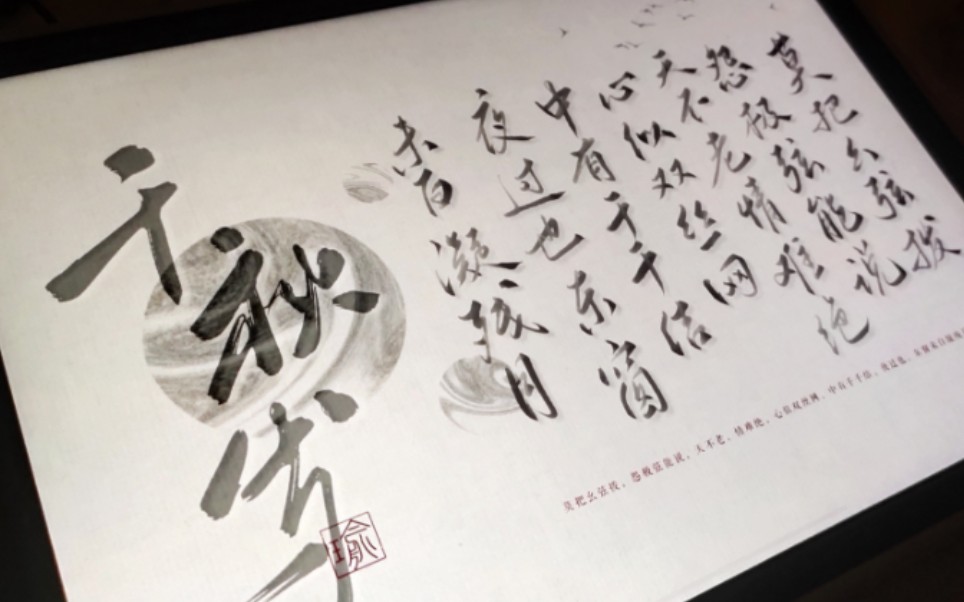 莫把幺弦拨
怨极弦能说
天不老情难绝
心似双丝网
中有千千结
夜过也东窗
未白凝残月
千秋岁
瑜
莫把幺弦拨，怨极弦能说，天不老，情难绝，心似双丝网，中有千千结，夜过也，东窗未白凝残